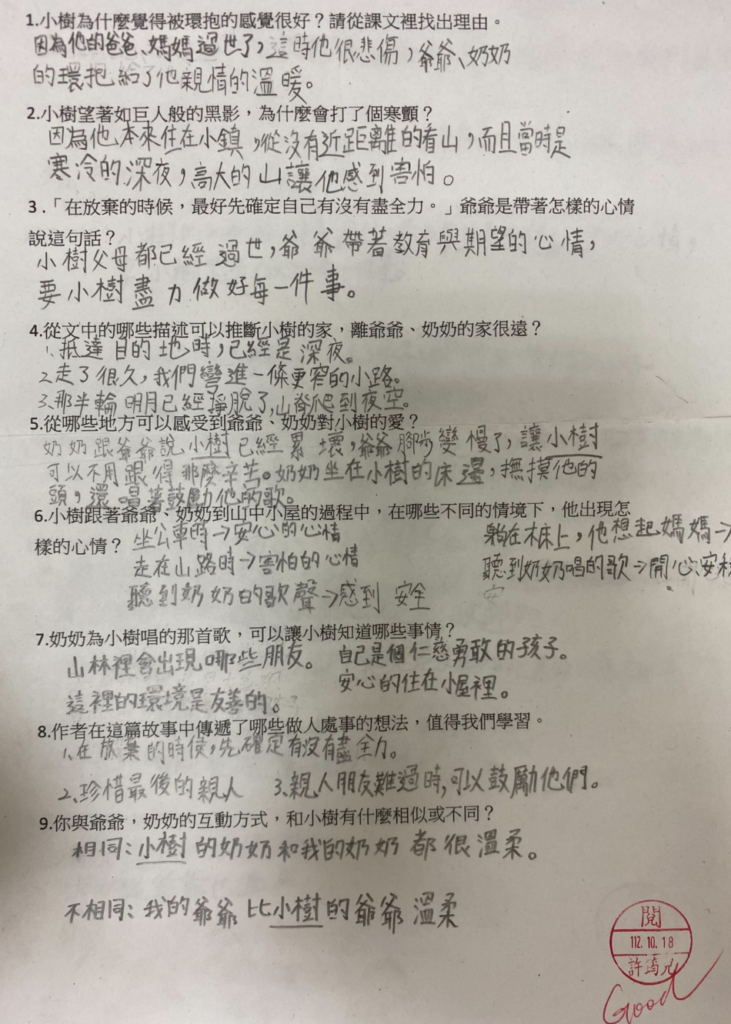 1.小樹為什麼覺得被環抱的感覺很好？請從課文裡找出理由。
因為他的爸爸、媽媽過世了，這時他很悲傷，爺爺、奶奶
的環抱給了他親情的溫暖。
2.小樹望著如巨人般的黑影，為什麼會打了個寒顫？
因為他本來住在小鎮，從沒有近距離的看山，而且當時是
寒冷的深夜，高大的山讓他感到害怕。
3.「在放棄的時候，最好先確定自己有沒有盡全力。」爺爺是帶著怎樣的心情
說這句話？
小樹父母都已經過世，爺爺帶著教育與期望的心情，
要小樹盡力做好每一件事。
4.從文中的哪些描述可以推斷小樹的家，離爺爺、奶奶的家很遠？
1.抵達目的地時，已經是深夜。
2.走了很久，我們彎進一條更窄的小路。
3.那半輪明月已經掙脫了山脊爬到夜空。
5.從哪些地方可以感受到爺爺、奶奶對小樹的愛？
奶奶跟爺爺說小樹已經累壞，爺爺腳步變慢了，讓小樹
可以不用跟得那麼辛苦。奶奶坐在小樹的床邊，撫摸他的
頭，還唱著鼓勵他的歌。
6.小樹跟著爺爺、奶奶到山中小屋的過程中，在哪些不同的情境下，他出現怎
樣的心情？
坐公車時→安心的心情
走在山路時→害怕的心情
聽到奶奶的歌聲→感到 安全
躺在床上，他想起媽媽→
聽到奶奶唱的歌→開心、安
7.奶奶為小樹唱的那首歌，可以讓小樹知道哪些事情？
山林裡會出現哪些朋友。 自己是個仁慈勇敢的孩子。
安心的住在小屋裡。
這裡的環境是友善的。
8.作者在這篇故事中傳遞了哪些做人處事的想法，值得我們學習。
1.在放棄的時侯，先確定有沒有盡全力。
2.珍惜最後的親人 3.親人朋友難過時，可以鼓勵他們。
9.你與爺爺，奶奶的互動方式，和小樹有什麼相似或不同？
相同：小樹的奶奶和我的奶奶都很溫柔。
不相同：我的爺爺比小樹的爺爺溫柔
閱
112.10.18
許
Good